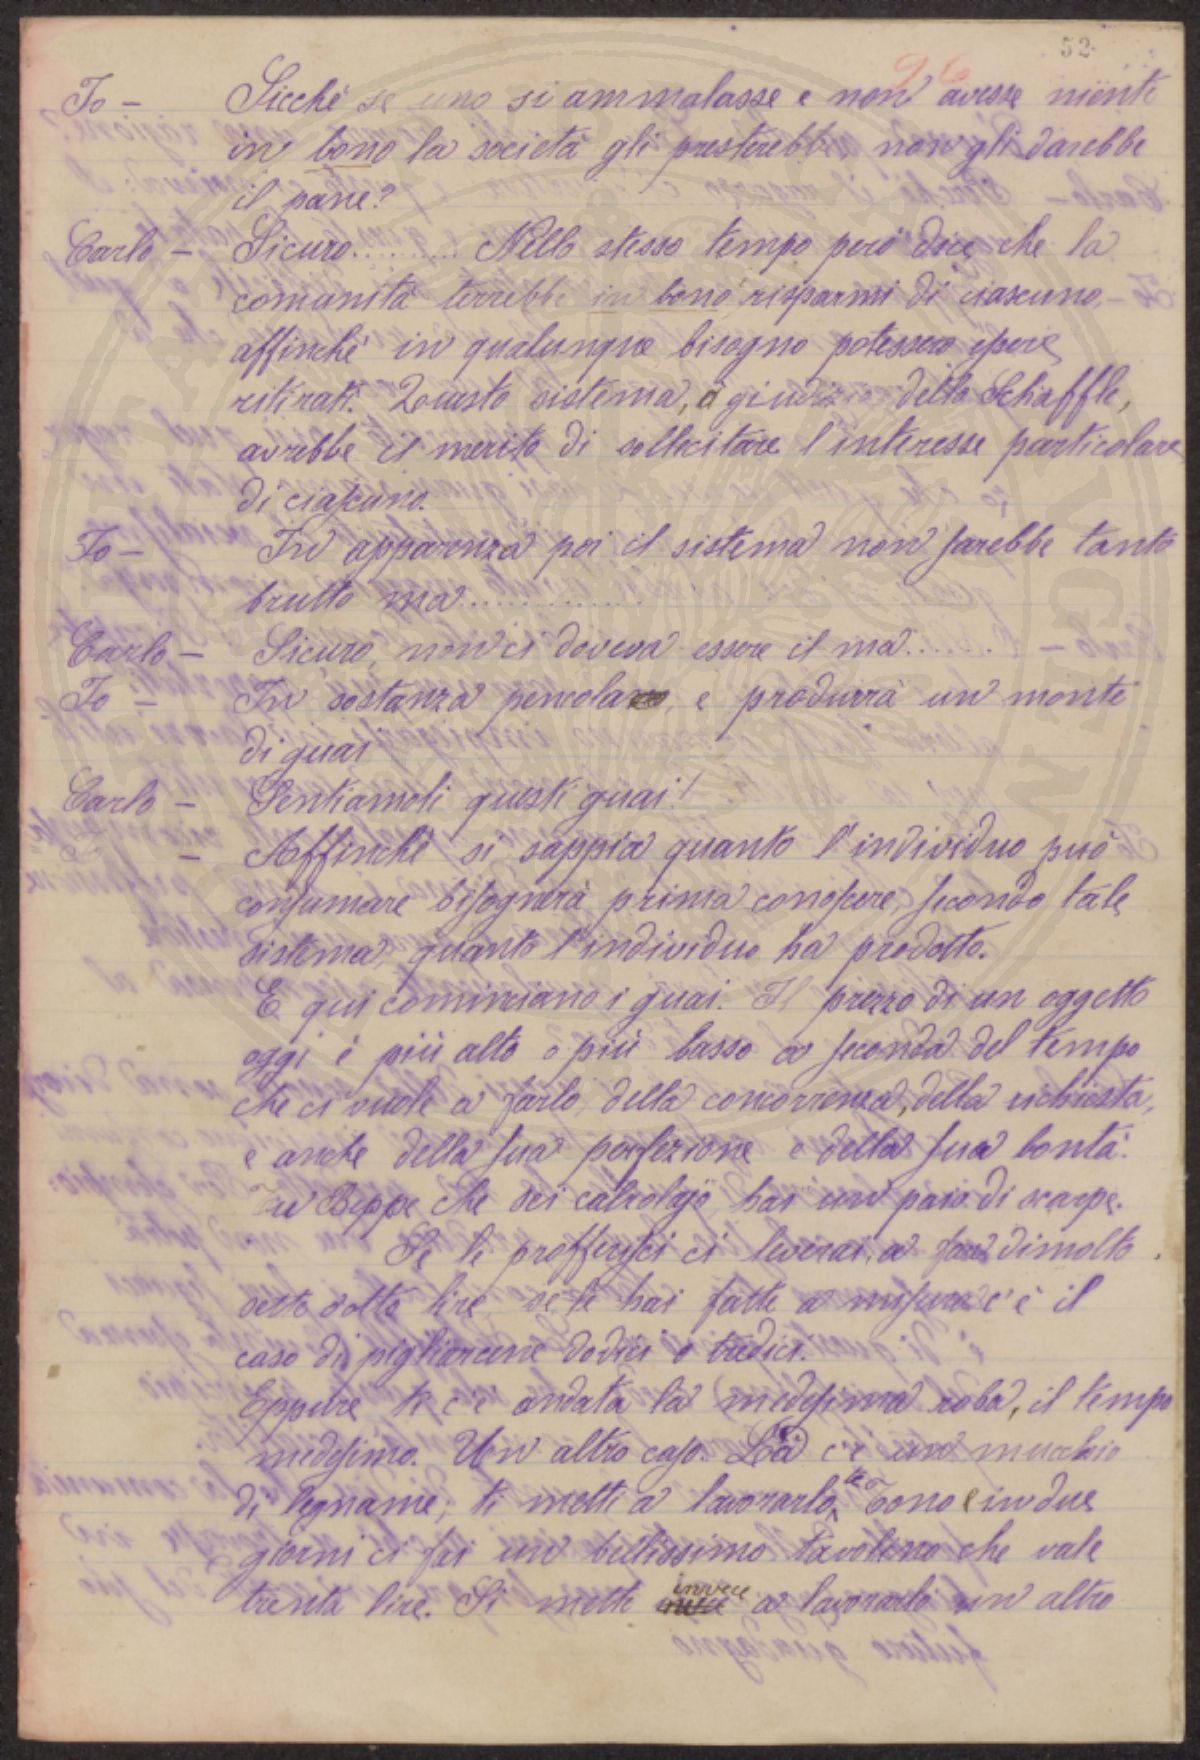 52
26
Io – Sicchè se uno si ammalasse e non avesse niente
in bono la società gli presterebbe, non gli darebbe
il pane?
Carlo – Sicuro......... Nello stesso tempo però dice che la
comunità terrebbe in bono risparmi di ciascuno,
affinchè in qualunque bisogno potessero essere
ritirati. Questo sistema, a giudizio dello Schaffle,
avrebbe il merito di sollecitare l'interesse particolare
di ciascuno.
Io – In apparenza poi il sistema non sarebbe tanto
brutto ma.............
Carlo – Sicuro, non ci doveva essere il ma......
Io – In sostanza pericola, e produrrà un monte
di guai
Carlo – Sentiamoli questi guai!
– Affinchè si sappia quanto l'individuo può
consumare bisognerà prima conoscere, secondo tale
sistema, quanto l'individuo ha prodotto.
E qui cominciano i guai. Il prezzo di un oggetto
oggi è più alto o più basso a seconda del tempo
che ci vuole a farlo, della concorrenza, della richiesta,
e anche della sua perfezione e della sua bontà.
Tu Beppe che sei calzolajo, hai un paio di scarpe.
Se le profferisci ci leverai, a far dimolto
sette otto lire, se le hai fatte a misura c'è il
caso di pigliarcene dodici o tredici.
Eppure te c'è andata la medesima roba, il tempo
medesimo. Un altro caso. Là c'è un mucchio
di legname; ti metti a lavorarlo te o Tono e in due
giorni ci fai un bellissimo tavolino che vale
trenta lire. Si mette invece a lavorarlo un altro